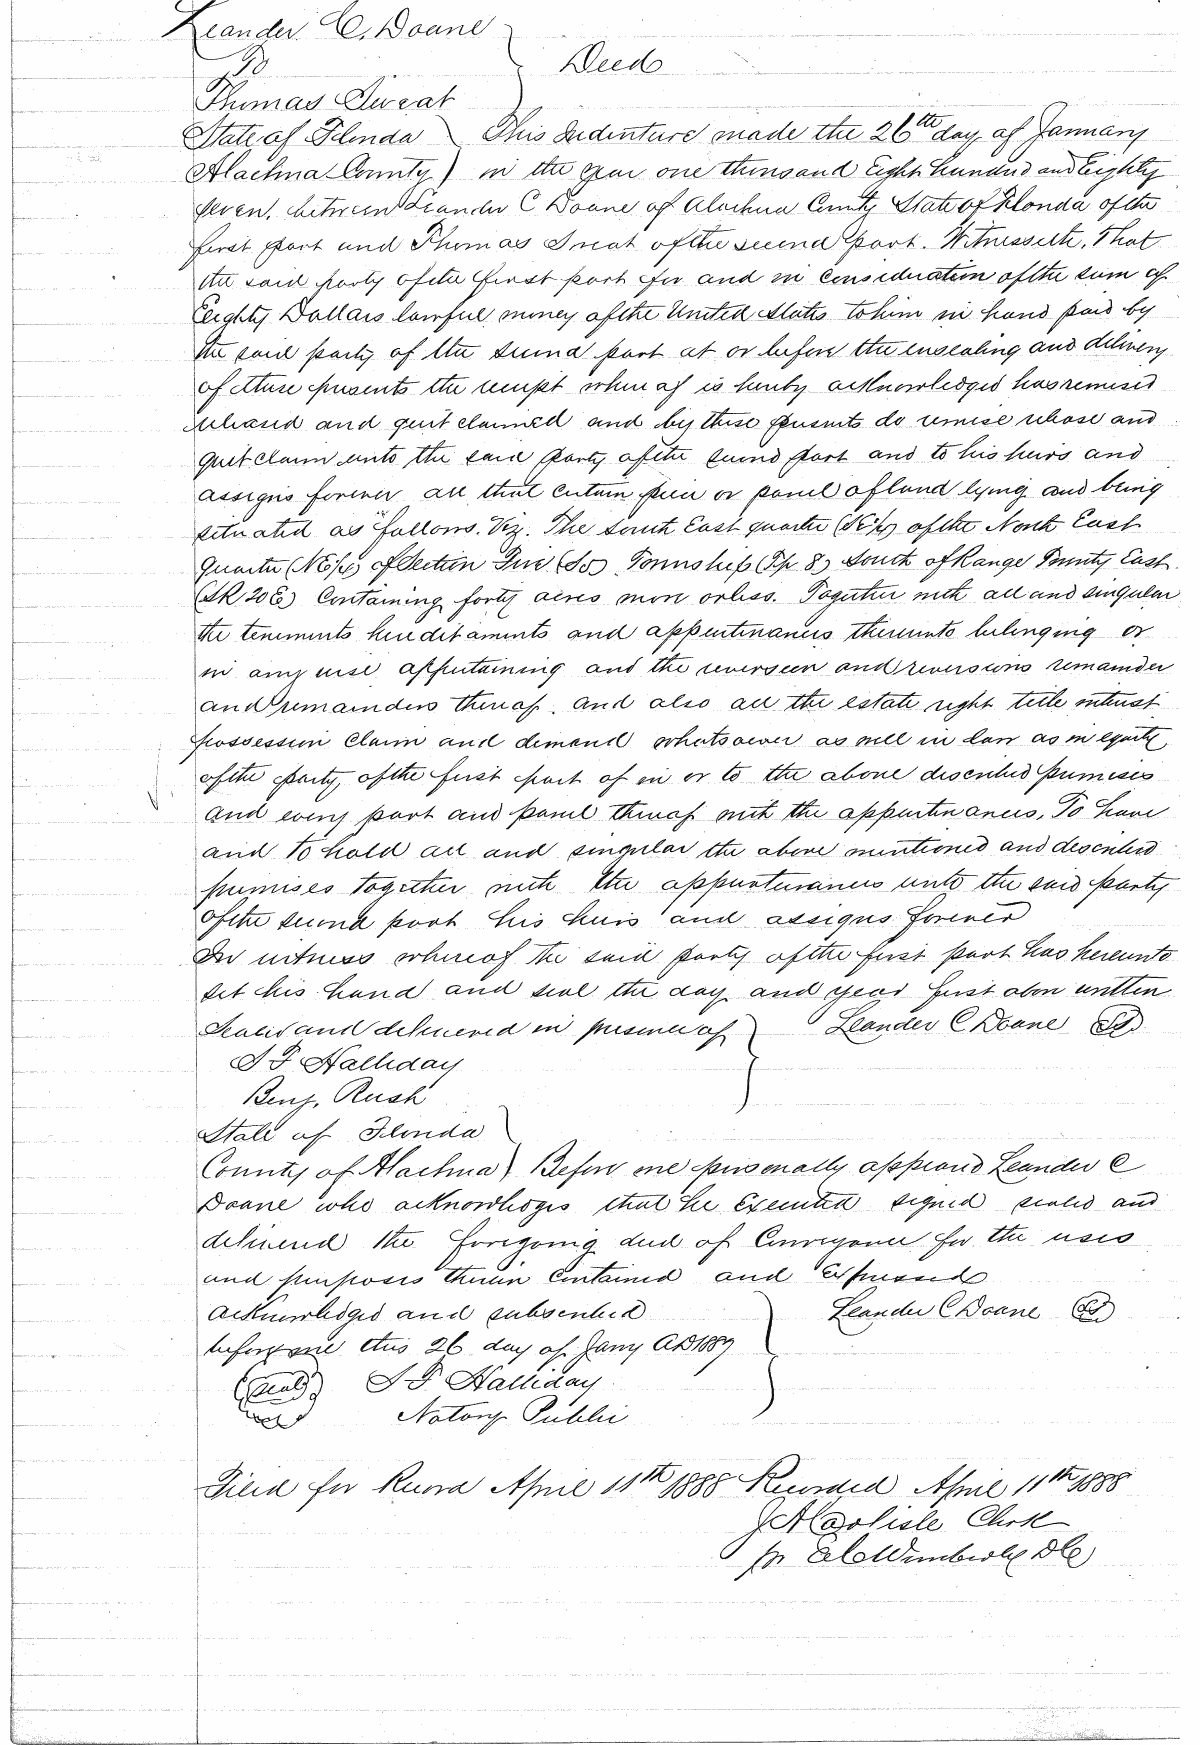 Leander C. Doane
To
Deed
Thomas Sweat
State of Florida This Indenture made the 26th day of January
Alachua County) in the year one thousand Eight hundred and Eighty
seven. between Leander C Doane of Alachua County State of Florida of the
first part and Thomas Sweat of the second part. Witnesseth, That
the said party of the first part for and in consideration of the sum of
Eighty Dollars lawful money of the United States to him in hand paid by
the said party of the second part at or before the ensealing and delivery
of these presents the receipt whereof is hereby acknowledged has remised
released and quit claimed and by these presents do remise release and
quit claim unto the said party of the second part and to his heirs and
assigns forever all that certain piece or parcel of land lying and being
situated as follows. Viz. The South East quarter (SE¼) of the North East
Quarter (NE¼) of Section Five (S5) Township (Tp. 8) South of Range Twenty East.
(SR 20E) Containing forty acres more or less. Together with all and singular
the tenements hereditaments and appurtenances thereunto belonging or
in any wise appertaining and the reversion and reversions remainder
and remainders thereof. and also all the estate right title interest
possession claim and demand whatsoever as well in law as in equity
of the party, of the first part of in or to the above described premises
and every part and parcel thereof with the appurtenances. To have
and to hold all and singular the above mentioned and described
premises together with the appurtenances unto the said party
of the second part his heirs and assigns forever
In witness whereof the said party of the first part has hereunto
set his hand and seal the day and year first above written
Sealed and delivered in presence of ) Leander C Doane
J F Halliday
Benj. Rush
State of Florida
County of Alachua) Before me personally appeared Leander C
Doane who acknowledges that he Executed signed sealed and
delivered the foregoing deed of Conveyance for the uses
and purposes therein contained and Expressed
acknowledged and subscribed Leander C Doane
before me this 26 day of Jany AD 1887
(seal) J F Halliday
Notary Public
Filed for Record April 11th 1888 Recorded April 11th 1888
J A Carlisle Clerk
pr Wimberly DC